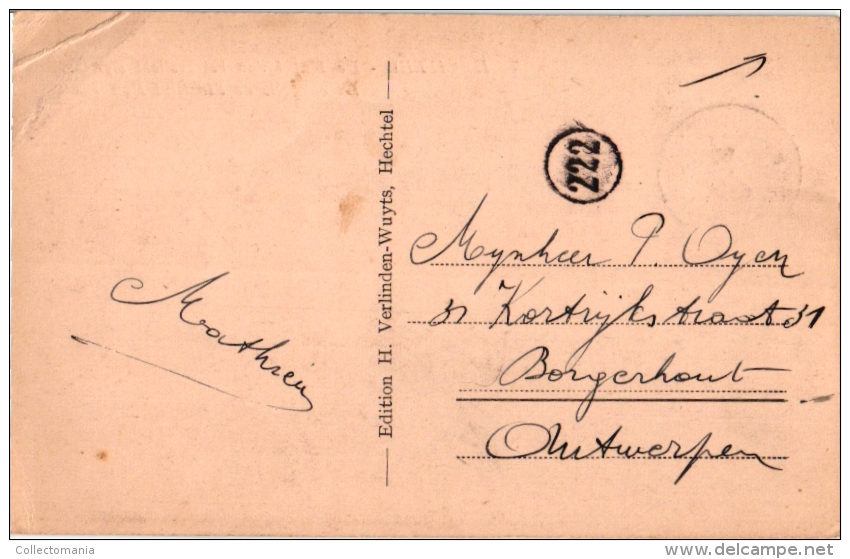 Mathieu
Edition H. Verlinden-Wuyts, Hechtel
222
Mynheer P. Oyen
31 Kortrijkstraat 31
Borgerhout
Antwerpen
Collectomania
delcampe.net